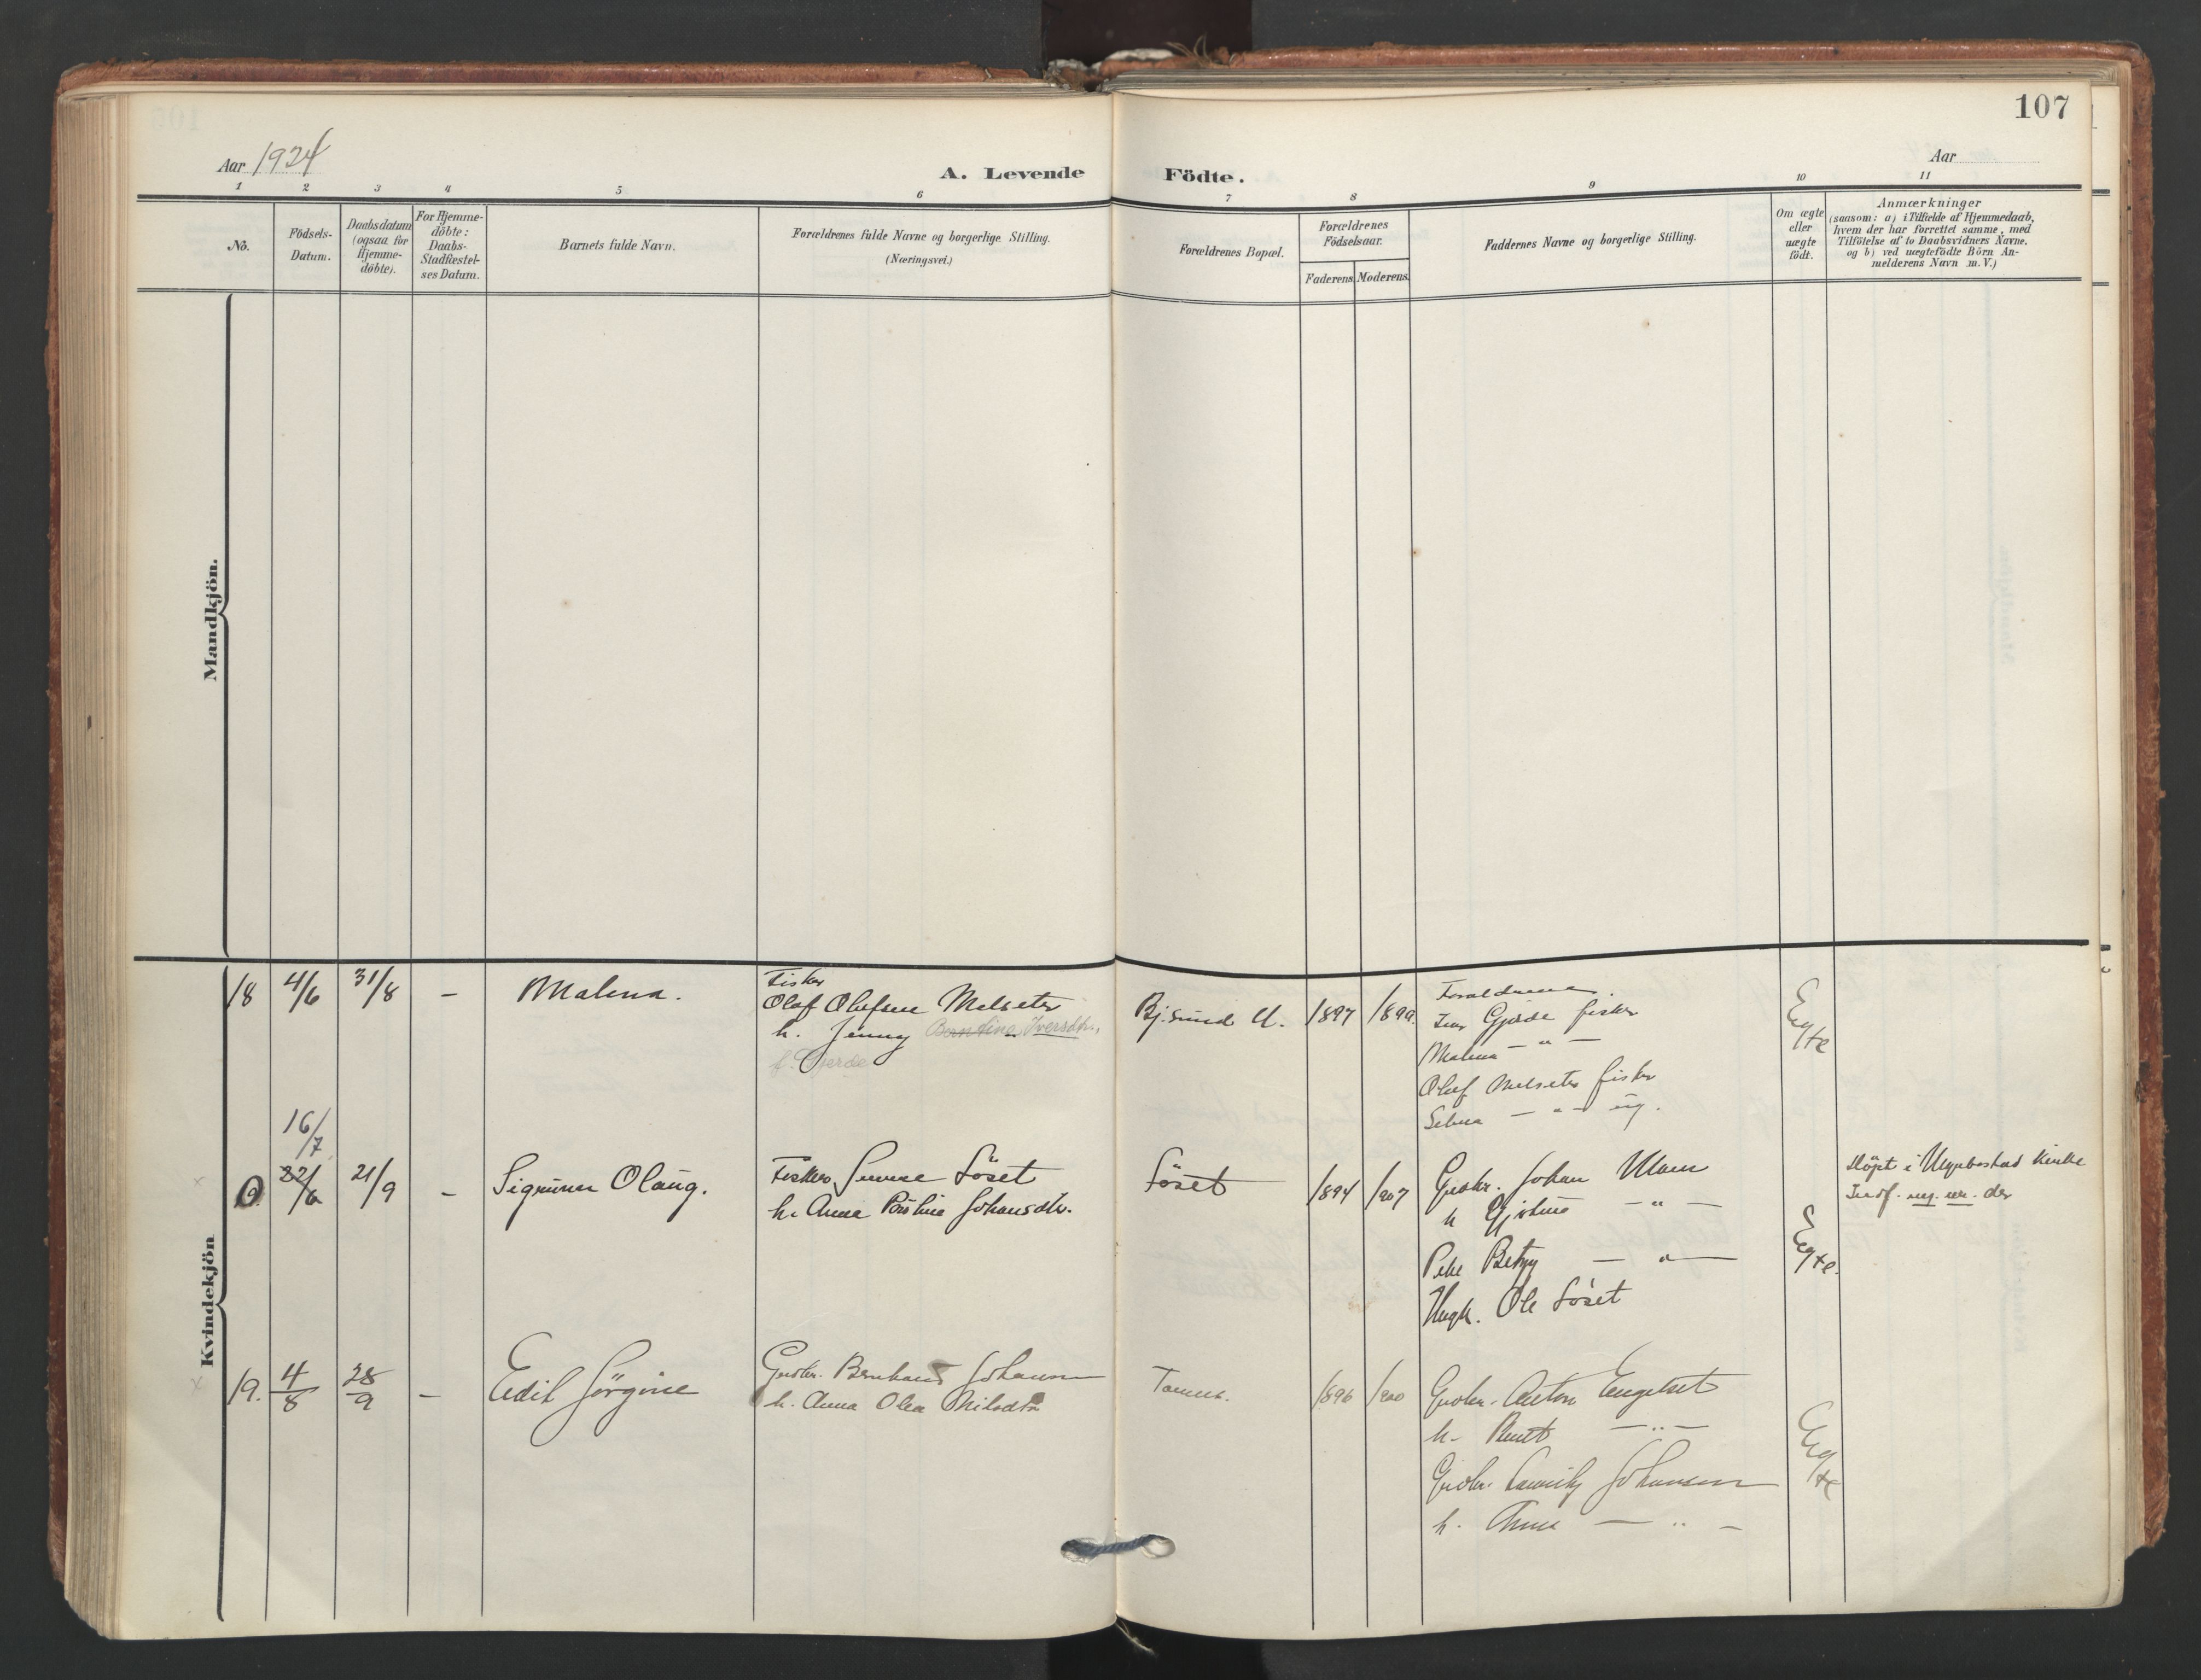 107
Aar 1924
A. Levende
Födte.
Aar
1 2 3 4 5 6 7 8 9 10 11
No.
Födsels-
Datum.
Daabsdatum
(ogsaa for
Hjemme-
döbte).
For Hjemme-
döbte:
Daabs-
Stadfæstel-
ses Datum.
Barnets fulde Navn.
Forældrenes fulde Navne og borgerlige Stilling.
(Næringsvei.)
Forældrenes Bopæl.
Forældrenes
Födselsaar.
Faderens. Moderens.
Faddernes Navne og borgerlige Stilling.
Om ægte
eller
uægte
födt.
Anmærkninger
(saasom: a) i Tilfælde af Hjemmedaab,
hvem der har forrettet samme, med
Tilföielse af to Daabsvidners Navne,
og b) ved uægtefödte Börn An-
melderens Navn m. V.)
Mandkjön.
Kvindekjön
18 4/6 31/8 – Malena.
Fisker
Olaf Olufsen Melseter
h. Jenny Berntina Iversdtr.,
f. Gjerde
Bj.sund U. 1897 1899
Forældrene.
Iver Gjærde fisker
Malena – " –
Olaf Melseter fisker
Selma – " – ug.
Egte
16/7
22/6 21/9 – Sigrunn Olaug.
Fisker Söset
h. Anna Johansdtr.
Söset 1894 1907
Grdbr. Johan Ulam
h – " –
Betzy – " –
Ungk. Ole Söset
Egte.
Döpt i kirke
19. 4/8 28/9 – Edil Jörgine
Grdbr. Bernhard Johansen
h. Anna Olea Nilsdtr
1896 1900
Grdbr. Anton Engelset
h. – " –
Grdbr. Johansen
h. Anna – " –
Egte